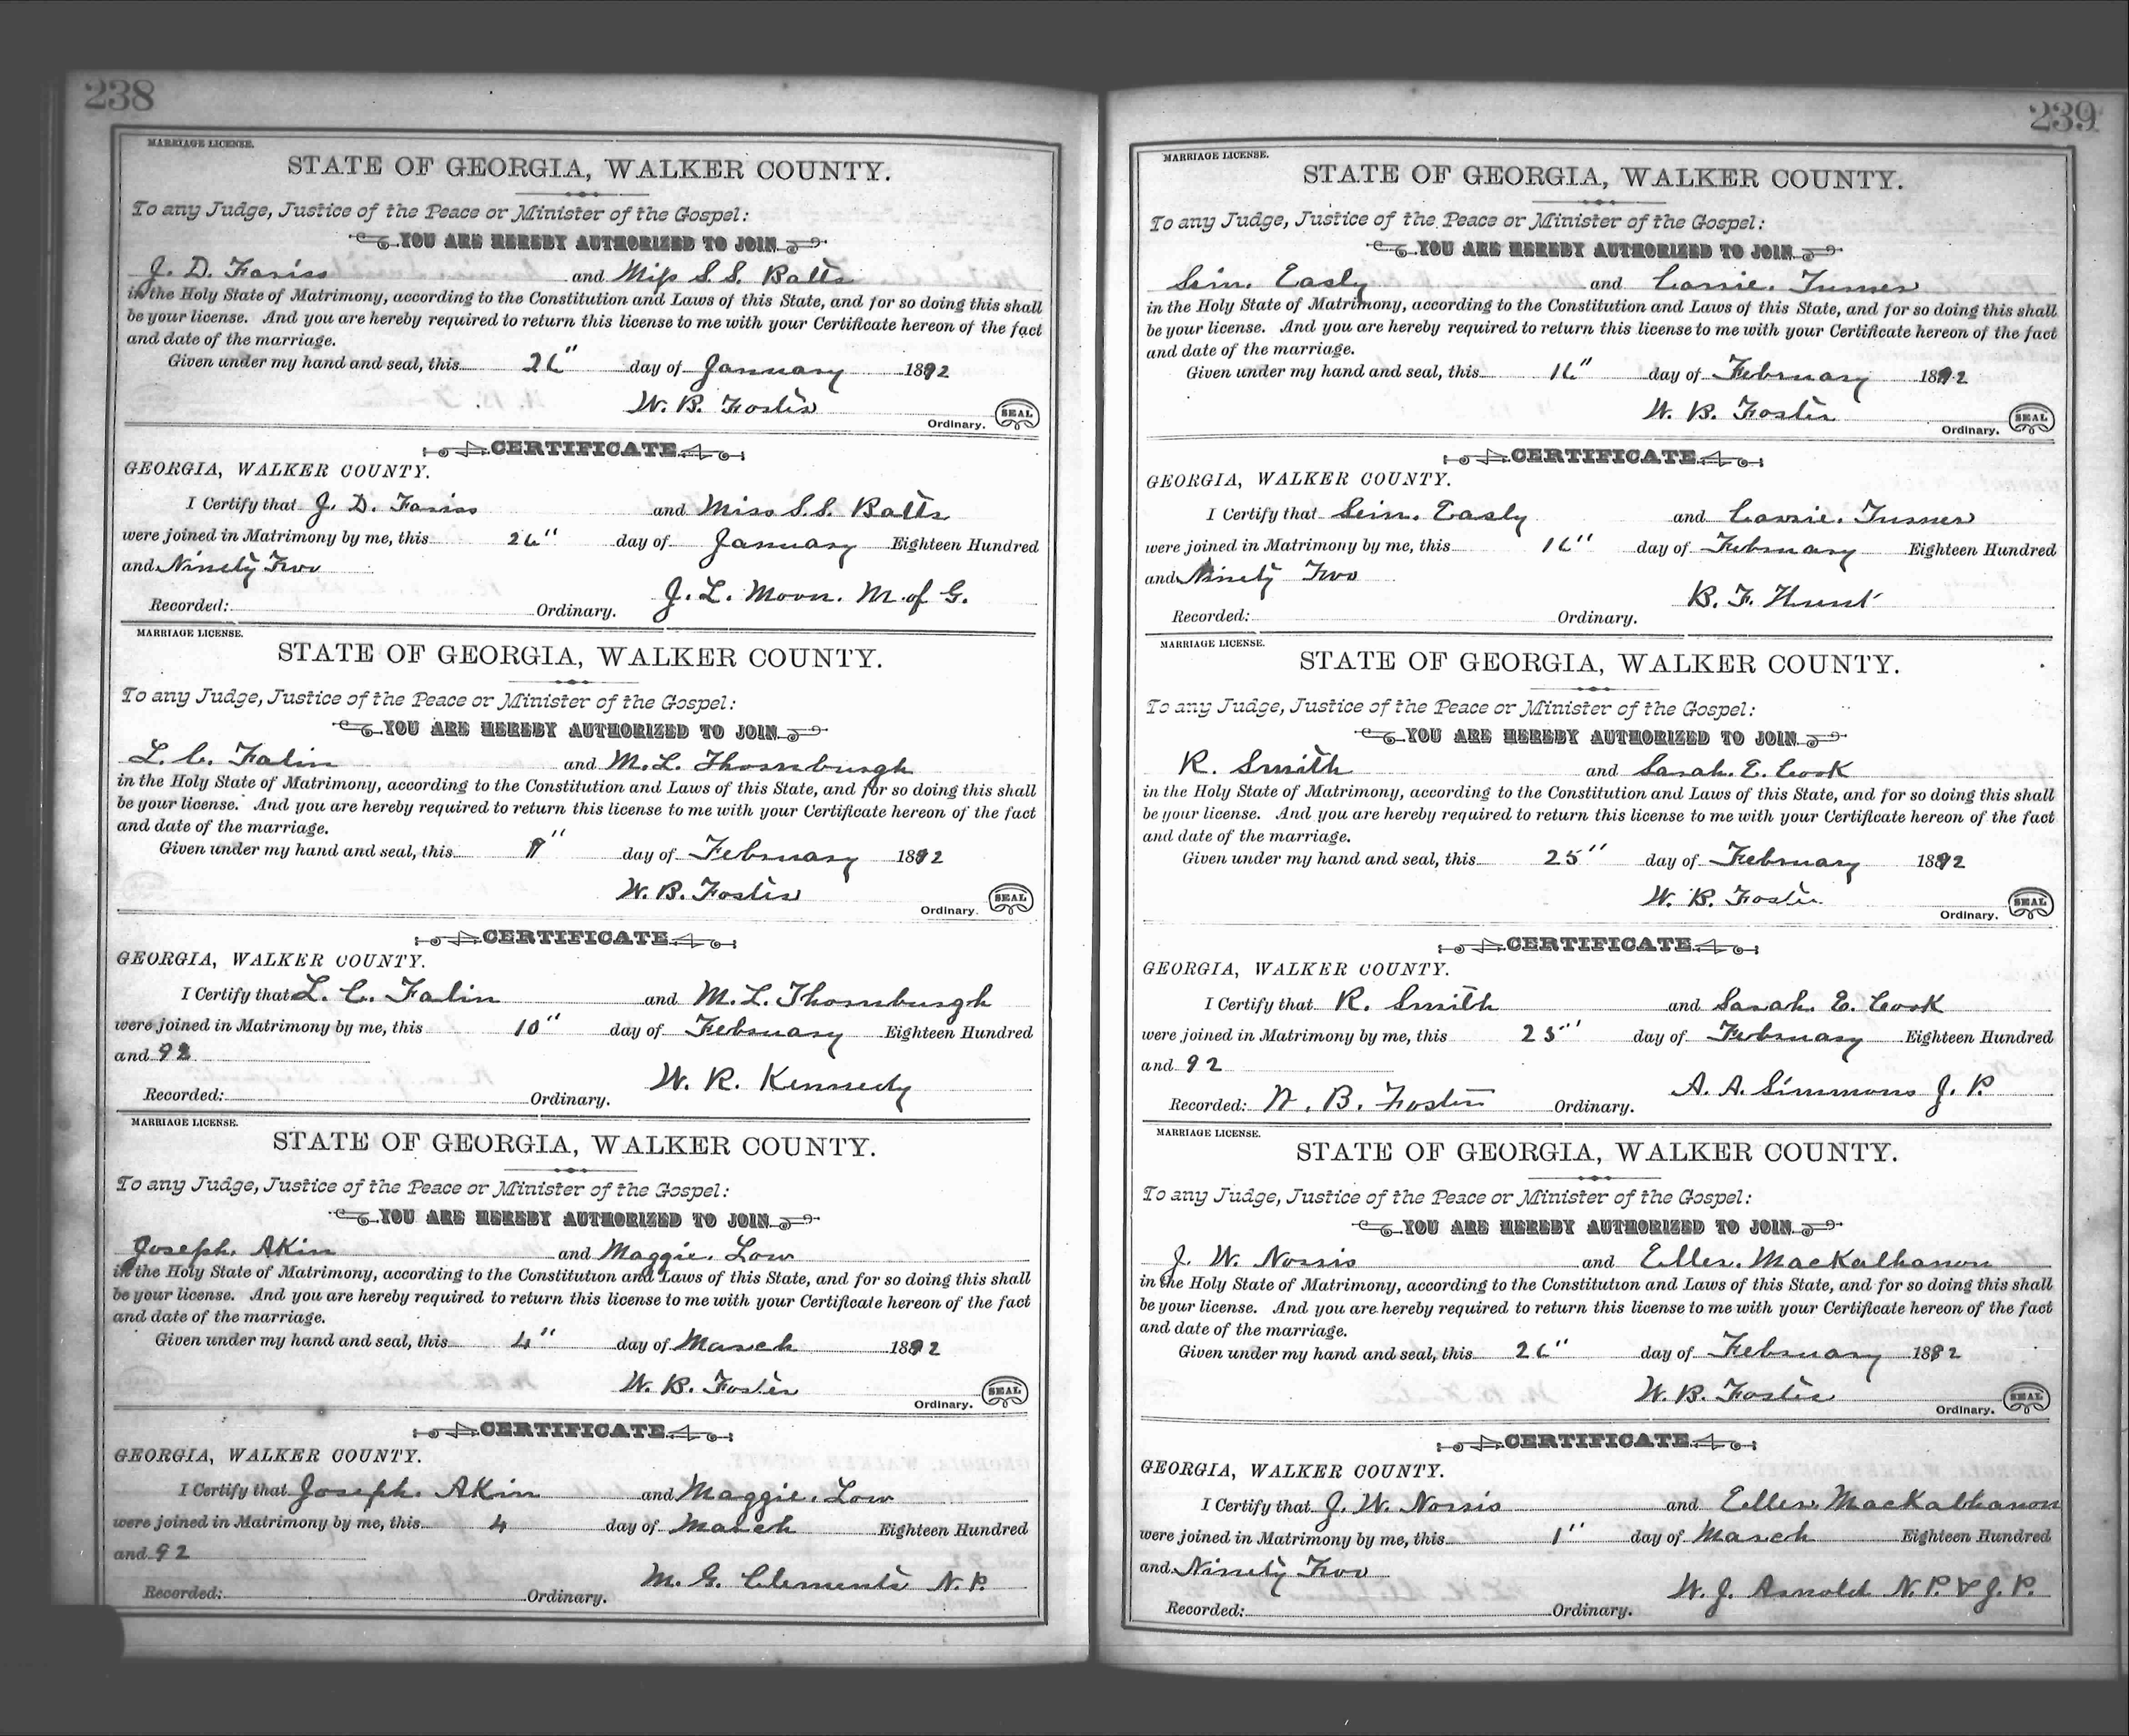 238
MARRIAGE LICENSE.
STATE OF GEORGIA, WALKER COUNTY.
To any Judge, Justice of the Peace or Minister of the Gospel:
YOU ARE HEREBY AUTHORIZED TO JOIN
J. D. Fariss and Miss S. S. Batts
in the Holy State of Matrimony, according to the Constitution and Laws of this State, and for so doing this shall
be your license. And you are hereby required to return this license to me with your Certificate hereon of the fact
and date of the marriage.
Given under my hand and seal, this 26" day of January 1892
W. B. Foster
Ordinary. SEAL
CERTIFICATE
GEORGIA, WALKER COUNTY.
I Certify that J. D. Fariss and Miss S. S. Batts
were joined in Matrimony by me, this 26" day of January Eighteen Hundred
and Ninety Two
J. L. Moon. M. of G.
Recorded: Ordinary.
MARRIAGE LICENSE.
STATE OF GEORGIA, WALKER COUNTY.
To any Judge, Justice of the Peace or Minister of the Gospel:
YOU ARE HEREBY AUTHORIZED TO JOIN
L. C. Falin and M. L. Thornburgh
in the Holy State of Matrimony, according to the Constitution and Laws of this State, and for so doing this shall
be your license. And you are hereby required to return this license to me with your Certificate hereon of the fact
and date of the marriage.
Given under my hand and seal, this day of February 1892
W. B. Foster
Ordinary. SEAL
CERTIFICATE
GEORGIA, WALKER COUNTY.
I Certify that L. C. Falin and M. L. Thornburgh
were joined in Matrimony by me, this 10" day of February Eighteen Hundred
and 92
W. R. Kennedy
Recorded: Ordinary.
MARRIAGE LICENSE.
STATE OF GEORGIA, WALKER COUNTY.
To any Judge, Justice of the Peace or Minister of the Gospel:
YOU ARE HEREBY AUTHORIZED TO JOIN
Joseph. Akin and Maggie. Low
in the Holy State of Matrimony, according to the Constitution and Laws of this State, and for so doing this shall
be your license. And you are hereby required to return this license to me with your Certificate hereon of the fact
and date of the marriage.
Given under my hand and seal, this 4" day of March 1892
W. B. Foster
Ordinary. SEAL
CERTIFICATE
GEORGIA, WALKER COUNTY.
I Certify that Joseph. Akin and Maggie. Low
were joined in Matrimony by me, this 4 day of March Eighteen Hundred
and 92
M. G. Clements N. P.
Recorded: Ordinary.
239
MARRIAGE LICENSE.
STATE OF GEORGIA, WALKER COUNTY.
To any Judge, Justice of the Peace or Minister of the Gospel:
YOU ARE HEREBY AUTHORIZED TO JOIN
Sim. Easly and Carrie. Turner
in the Holy State of Matrimony, according to the Constitution and Laws of this State, and for so doing this shall
be your license. And you are hereby required to return this license to me with your Certificate hereon of the fact
and date of the marriage.
Given under my hand and seal, this 16" day of February 1892
W. B. Foster
Ordinary. SEAL
CERTIFICATE
GEORGIA, WALKER COUNTY.
I Certify that Sim. Easly and Carrie. Turner
were joined in Matrimony by me, this 16" day of February Eighteen Hundred
and Ninety Two
B. F. Hunt
Recorded: Ordinary.
MARRIAGE LICENSE.
STATE OF GEORGIA, WALKER COUNTY.
To any Judge, Justice of the Peace or Minister of the Gospel:
YOU ARE HEREBY AUTHORIZED TO JOIN
R. Smith and Sarah. E. Cook
in the Holy State of Matrimony, according to the Constitution and Laws of this State, and for so doing this shall
be your license. And you are hereby required to return this license to me with your Certificate hereon of the fact
and date of the marriage.
Given under my hand and seal, this 25" day of February 1892
W. B. Foster
Ordinary. SEAL
CERTIFICATE
GEORGIA, WALKER COUNTY.
I Certify that R. Smith and Sarah. E. Cook
were joined in Matrimony by me, this 25" day of February Eighteen Hundred
and 92
A. A. Simmons J. P.
Recorded: W. B. Foster Ordinary.
MARRIAGE LICENSE.
STATE OF GEORGIA, WALKER COUNTY.
To any Judge, Justice of the Peace or Minister of the Gospel:
YOU ARE HEREBY AUTHORIZED TO JOIN
J. W. Norris and Ellen. MacKalhanon
in the Holy State of Matrimony, according to the Constitution and Laws of this State, and for so doing this shall
be your license. And you are hereby required to return this license to me with your Certificate hereon of the fact
and date of the marriage.
Given under my hand and seal, this 26" day of February 1892
W. B. Foster
Ordinary. SEAL
CERTIFICATE
GEORGIA, WALKER COUNTY.
I Certify that J. W. Norris and Ellen MacKalhanon
were joined in Matrimony by me, this 1" day of March Eighteen Hundred
and Ninety Two
W. J. Arnold N. P. & J. P.
Recorded: Ordinary.